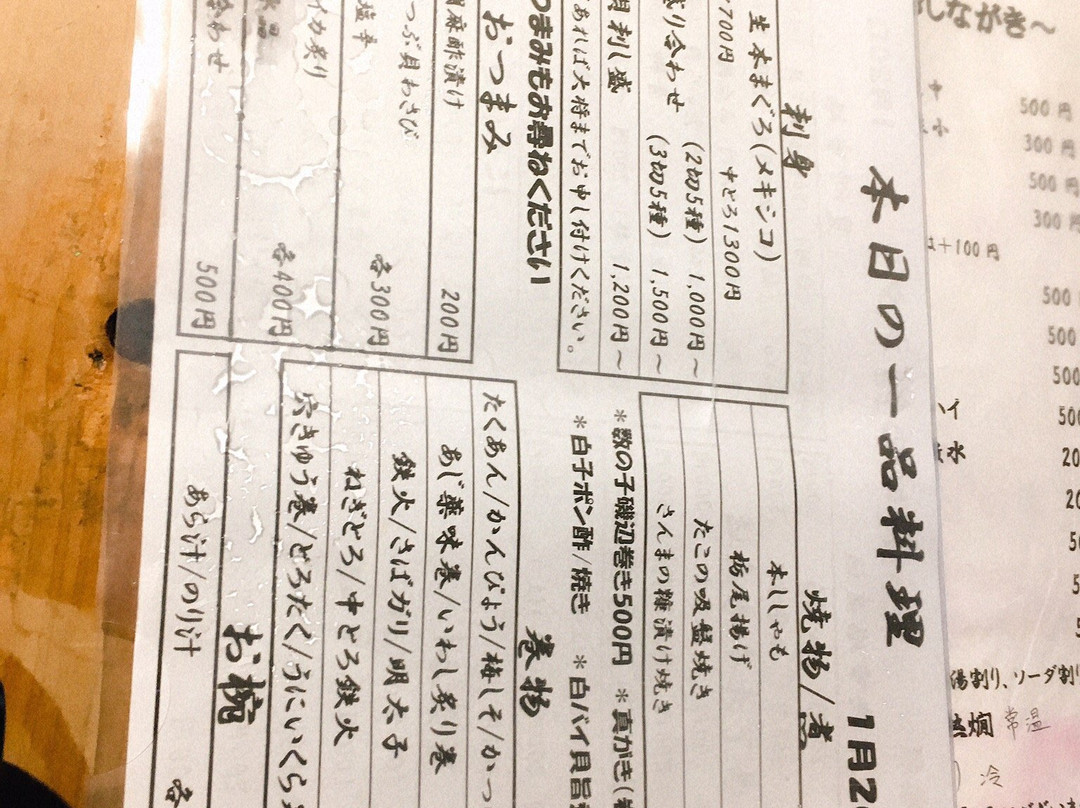 本日の一品料理
1月2
刺身
生本まぐろ(メキシコ)
700円 中とろ1300円
盛り合わせ (2切5種) 1,000円〜
(3切5種) 1,500円〜
貝刺し盛 1,200円〜
あれば大将までお申し付けください。
つまみもお尋ねください
おつまみ
胡麻酢漬け 200円
つぶ貝わさび
塩辛 各300円
イカ炙り
各400円
合わせ 500円
焼物/煮
本ししゃも
栃尾揚げ
たこの吸盤焼き
さんまの糠漬け焼き
*数の子磯辺巻き500円 *真がき(
*白子ポン酢/焼き *白バイ貝旨
巻物
たくあん/かんぴょう/梅しそ/かっ
あじ薬味巻/いわし炙り巻
鉄火/さばガリ/明太子
ねぎとろ/中とろ鉄火
穴きゅう巻/とろたく/うにいくら
お椀
あら汁/のり汁
各
しながき〜
中 500円
小 300円
500円
300円
+100円
500
500
500
500
200
湯割り、ソーダ割り
熱燗 常温
冷